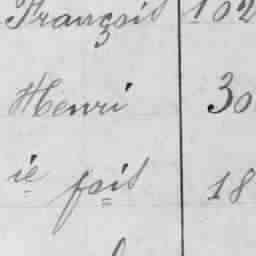 François 102
Henri 30
ie fois 18